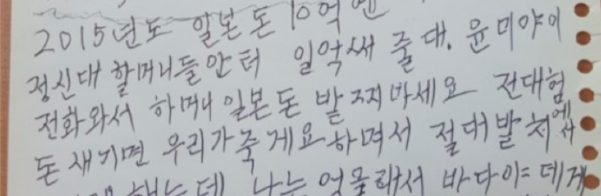 2015년도 일본돈 10억엔
정신대 할머니들안터 일악쌔 줄대. 윤미야이
전화와서 하머니 일본돈 받찌마세요 전대험
돈 새기면 우리가죽게요 하며서 절대발치에서
해는데 나는 억울래서 바다이= 데게